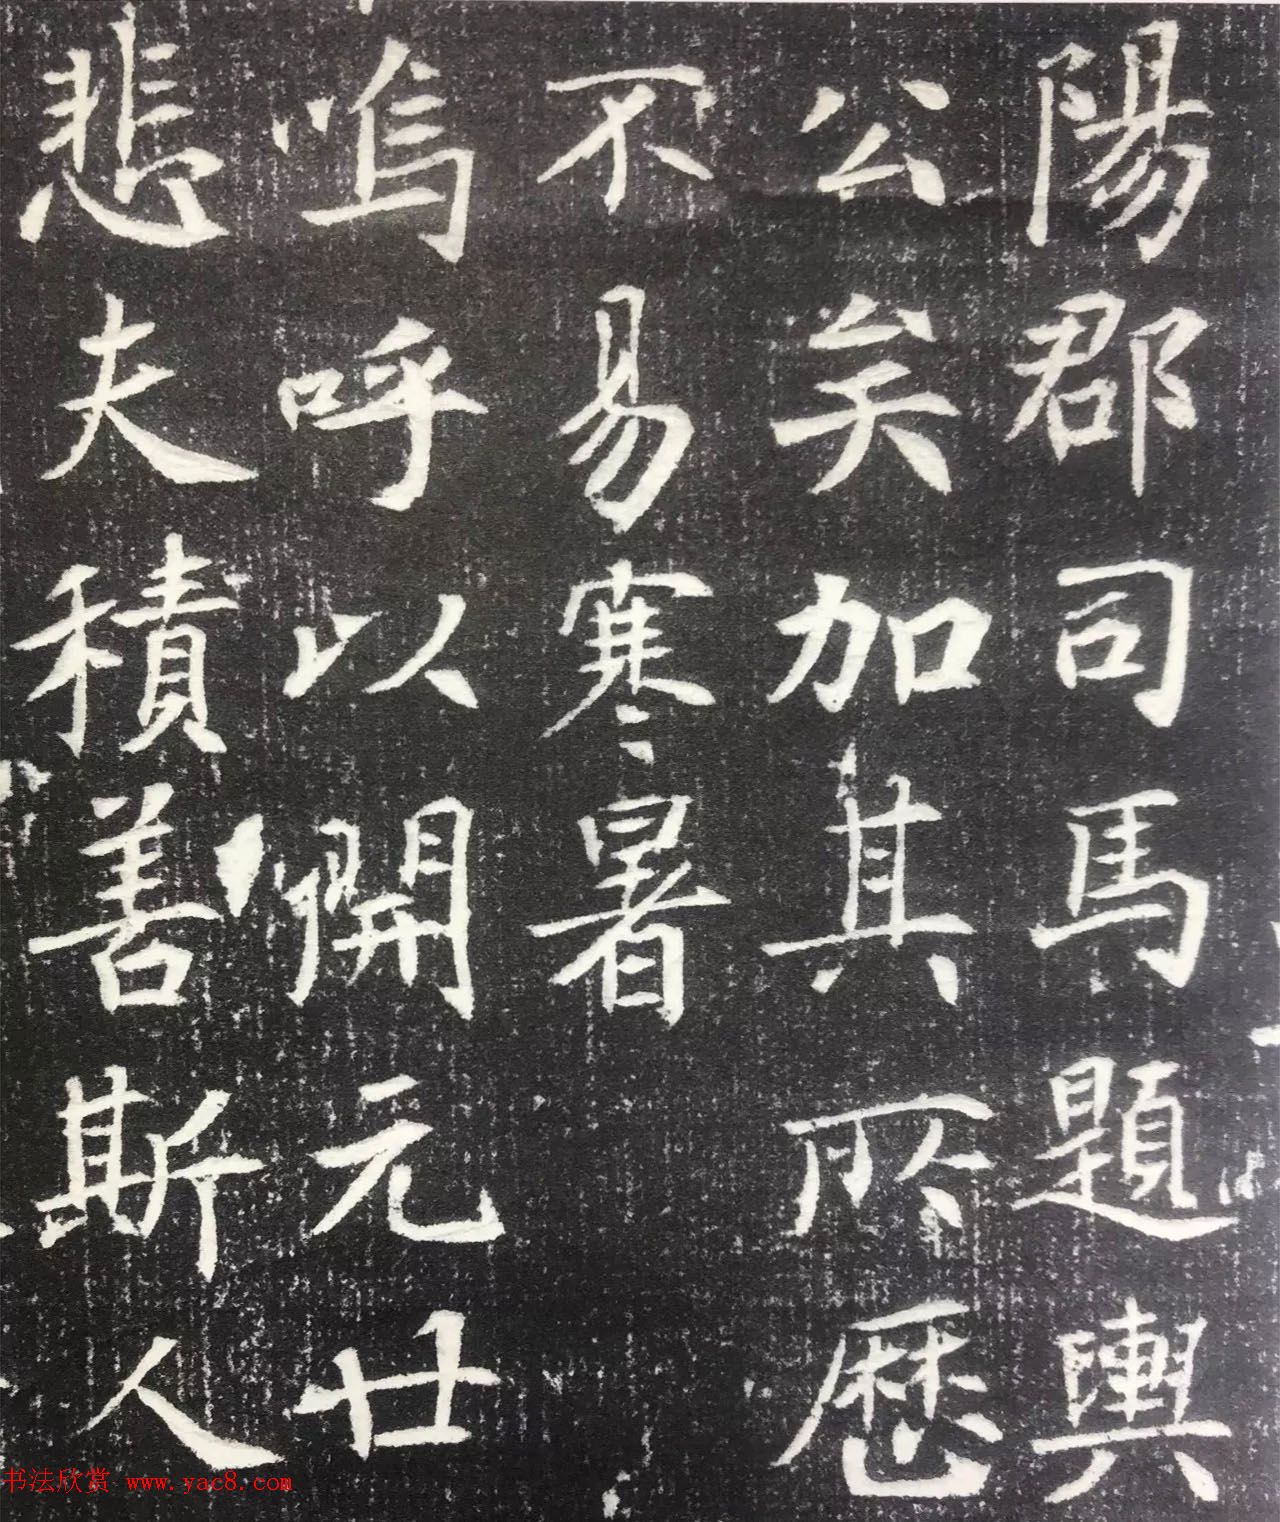 陽郡司馬題輿
公矣加其所歷
不易寒暑
嗚呼以開元廿
悲夫積善斯人
书法欣赏 www.yac8.com